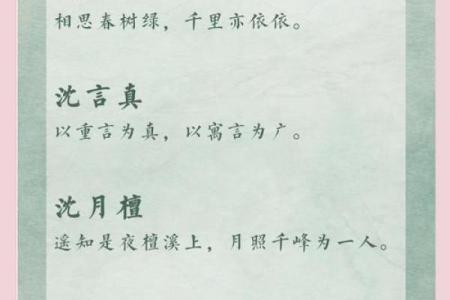 相思春树绿，千里亦依依。
沈言真
以重言为真，以寓言为广。
沈月檀
遥知是夜檀溪上，月照千峰为一人。